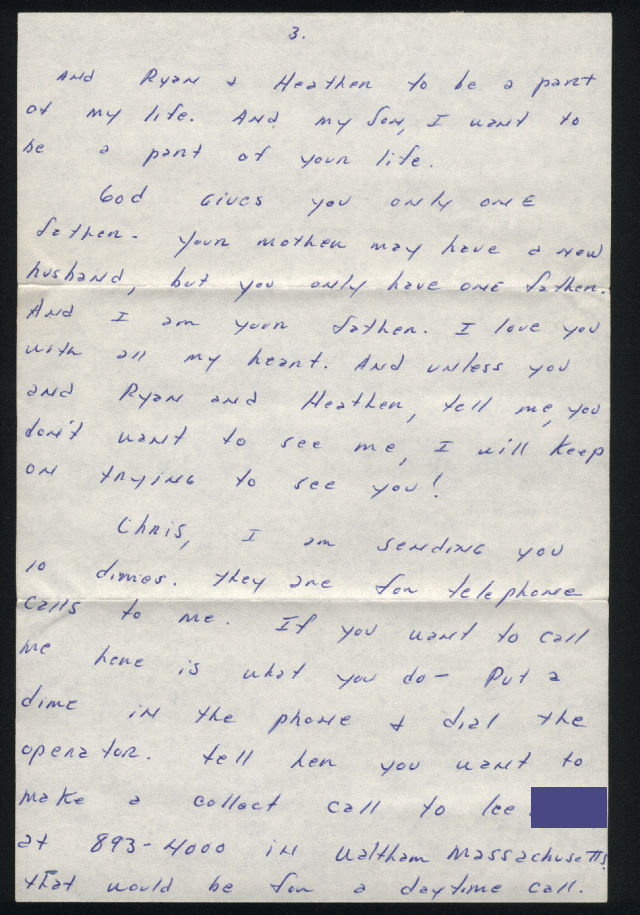 3.
And Ryan & Heather to be a part
of my life. And my son, I want to
be a part of your life.
God gives you only one
father. Your mother may have a new
husband, but you only have one father.
And I am your father. I love you
with all my heart. And unless you
and Ryan and Heather, tell me, you
don't want to see me, I will keep
on trying to see you!
Chris, I am sending you
10 dimes. they are for telephone
calls to me. If you want to call
me here is what you do- Put a
dime in the phone & dial the
operator. tell her you want to
make a collect call to lee
at 893-4000 in Waltham Massachusetts
that would be for a daytime call.